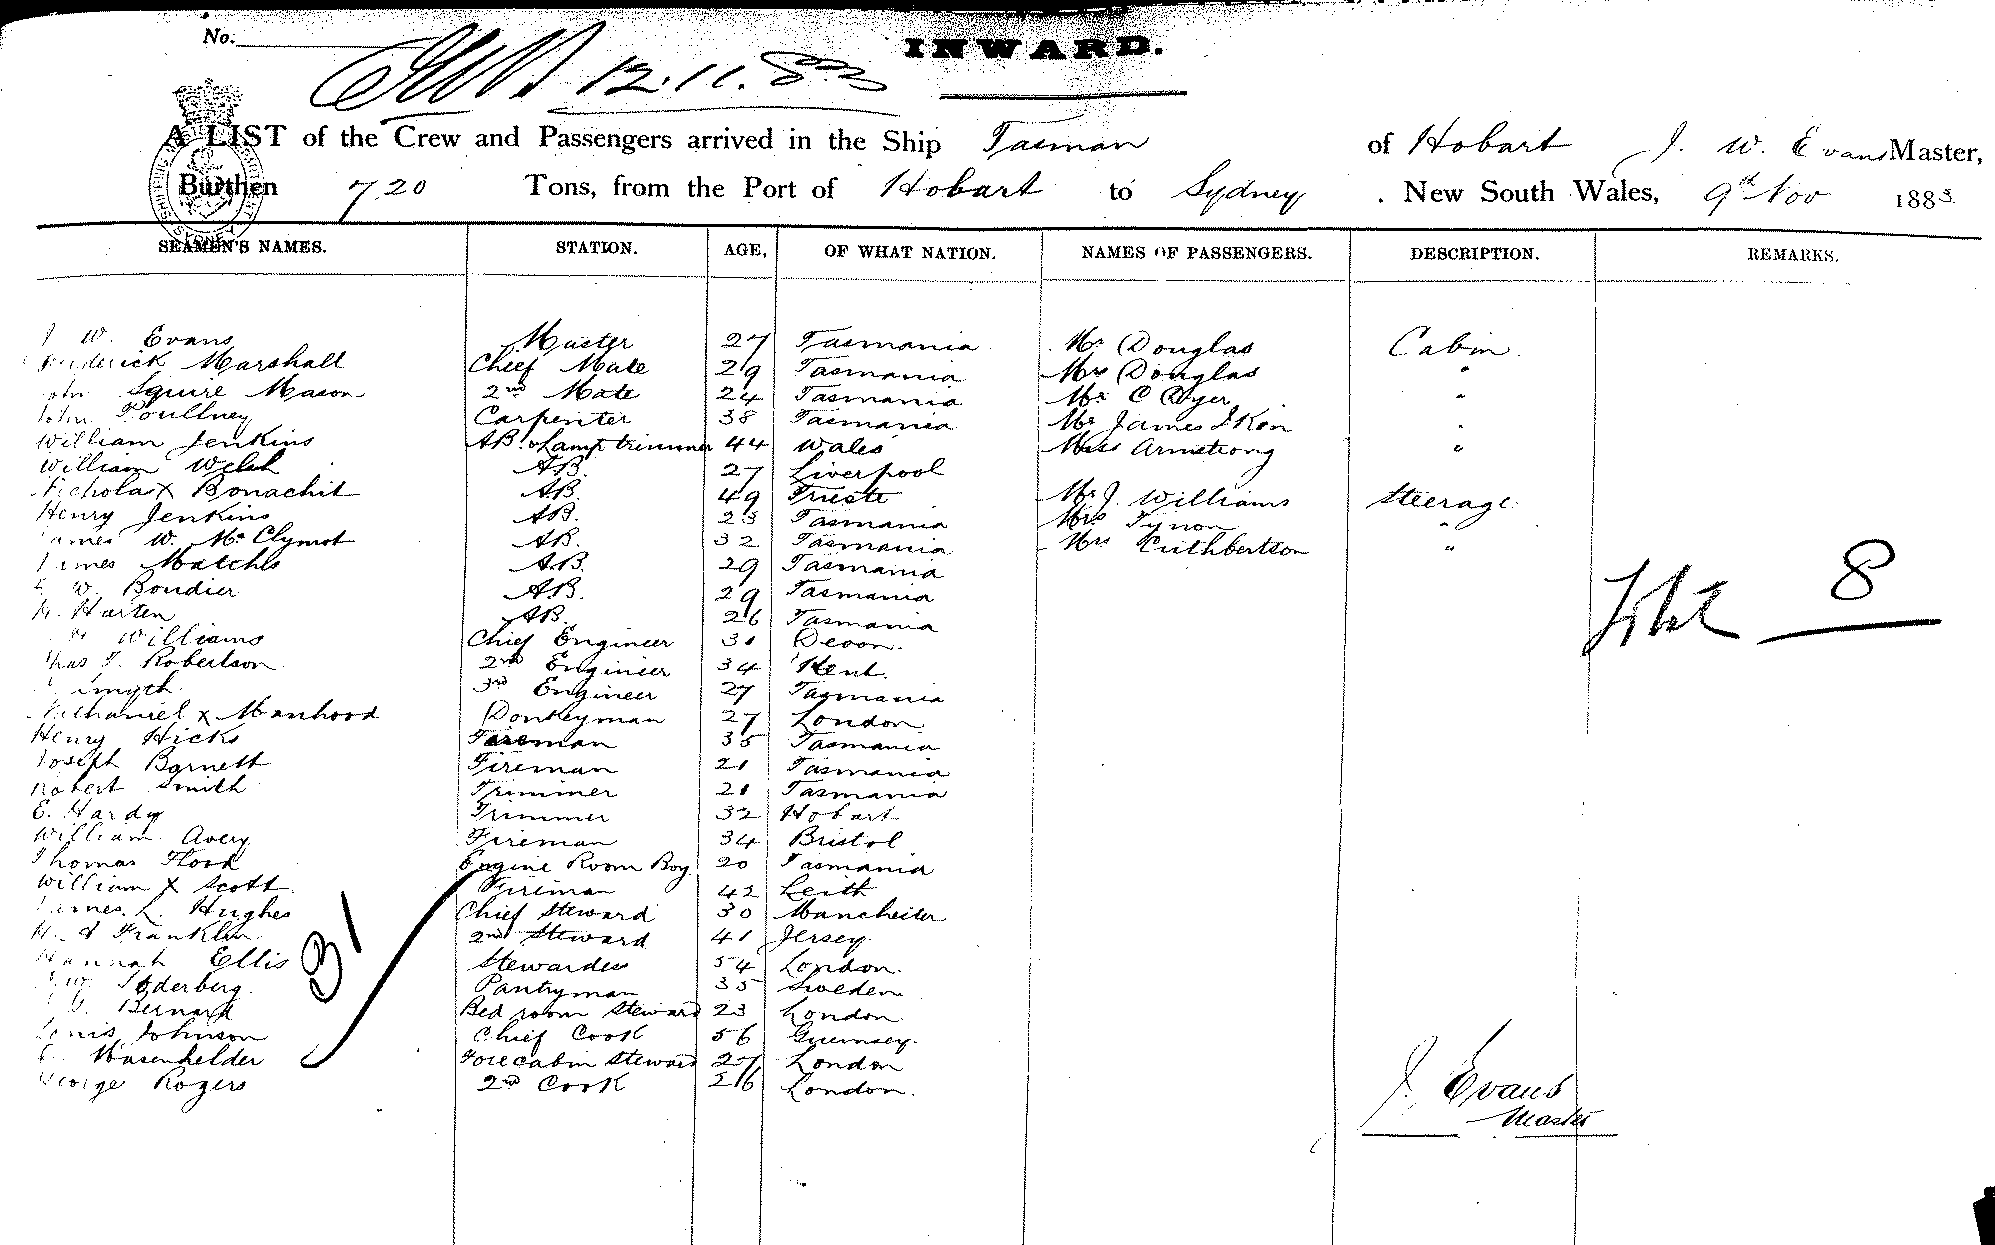 No.
INWARD.
12.11.83
A LIST of the Crew and Passengers arrived in the Ship Tasman of Hobart J. W. Evans Master,
Burthen 720 Tons, from the Port of Hobart to Sydney . New South Wales, 9th Nov 1883
SEAMEN'S NAMES. STATION. AGE, OF WHAT NATION. NAMES OF PASSENGERS. DESCRIPTION. REMARKS.
J W. Evans Master 27 Tasmania Mr Douglas Cabin
Frederick Marshall Chief Mate 29 Tasmania Mrs Douglas "
John Squire Mason 2nd Mate 24 Tasmania Mr C Dyer "
John Poultney Carpenter 38 Tasmania Mr James "
William Jenkins AB & Lamp trimmer 44 Wales Miss Armstrong "
William Welch AB. 27 Liverpool
Nicholas X Bonachit AB. 49 Trieste Mr J. Williams Steerage
Henry Jenkins AB. 23 Tasmania Mrs Tynon "
James W. McClymot AB. 32 Tasmania Mrs Cuthbertson "
James Matches AB. 29 Tasmania
W. Boudier AB. 29 Tasmania
H. Harten AB. 26 Tasmania
Williams Chief Engineer 31 Devon.
Chas T. Robertson 2nd Engineer 34 Kent.
Smyth 3rd Engineer 27 Tasmania
Nathaniel X Manhood Donkeyman 27 London
Henry Hicks Fireman 35 Tasmania
Joseph Barnett Fireman 21 Tasmania
Robert Smith Trimmer 21 Tasmania
E. Hardy Trimmer 32 Hobart
William Avery Fireman 34 Bristol
Thomas Hood Engine Room Boy 20 Tasmania
William X Scott Fireman 42 Leith
James L. Hughes Chief Steward 30 Manchester
H. J Franklin 2nd Steward 41 Jersey
Hannah Ellis Stewardess 54 London.
W. Soderberg. Pantryman 35 Sweden
Bernard Bed room Steward 23 London
Louis Johnson Chief Cook 56 Guernsey.
C. Masenhelder Forecabin Steward 27 London
George Rogers 2nd Cook 26 London.
31
Total 8
J. Evans
Master